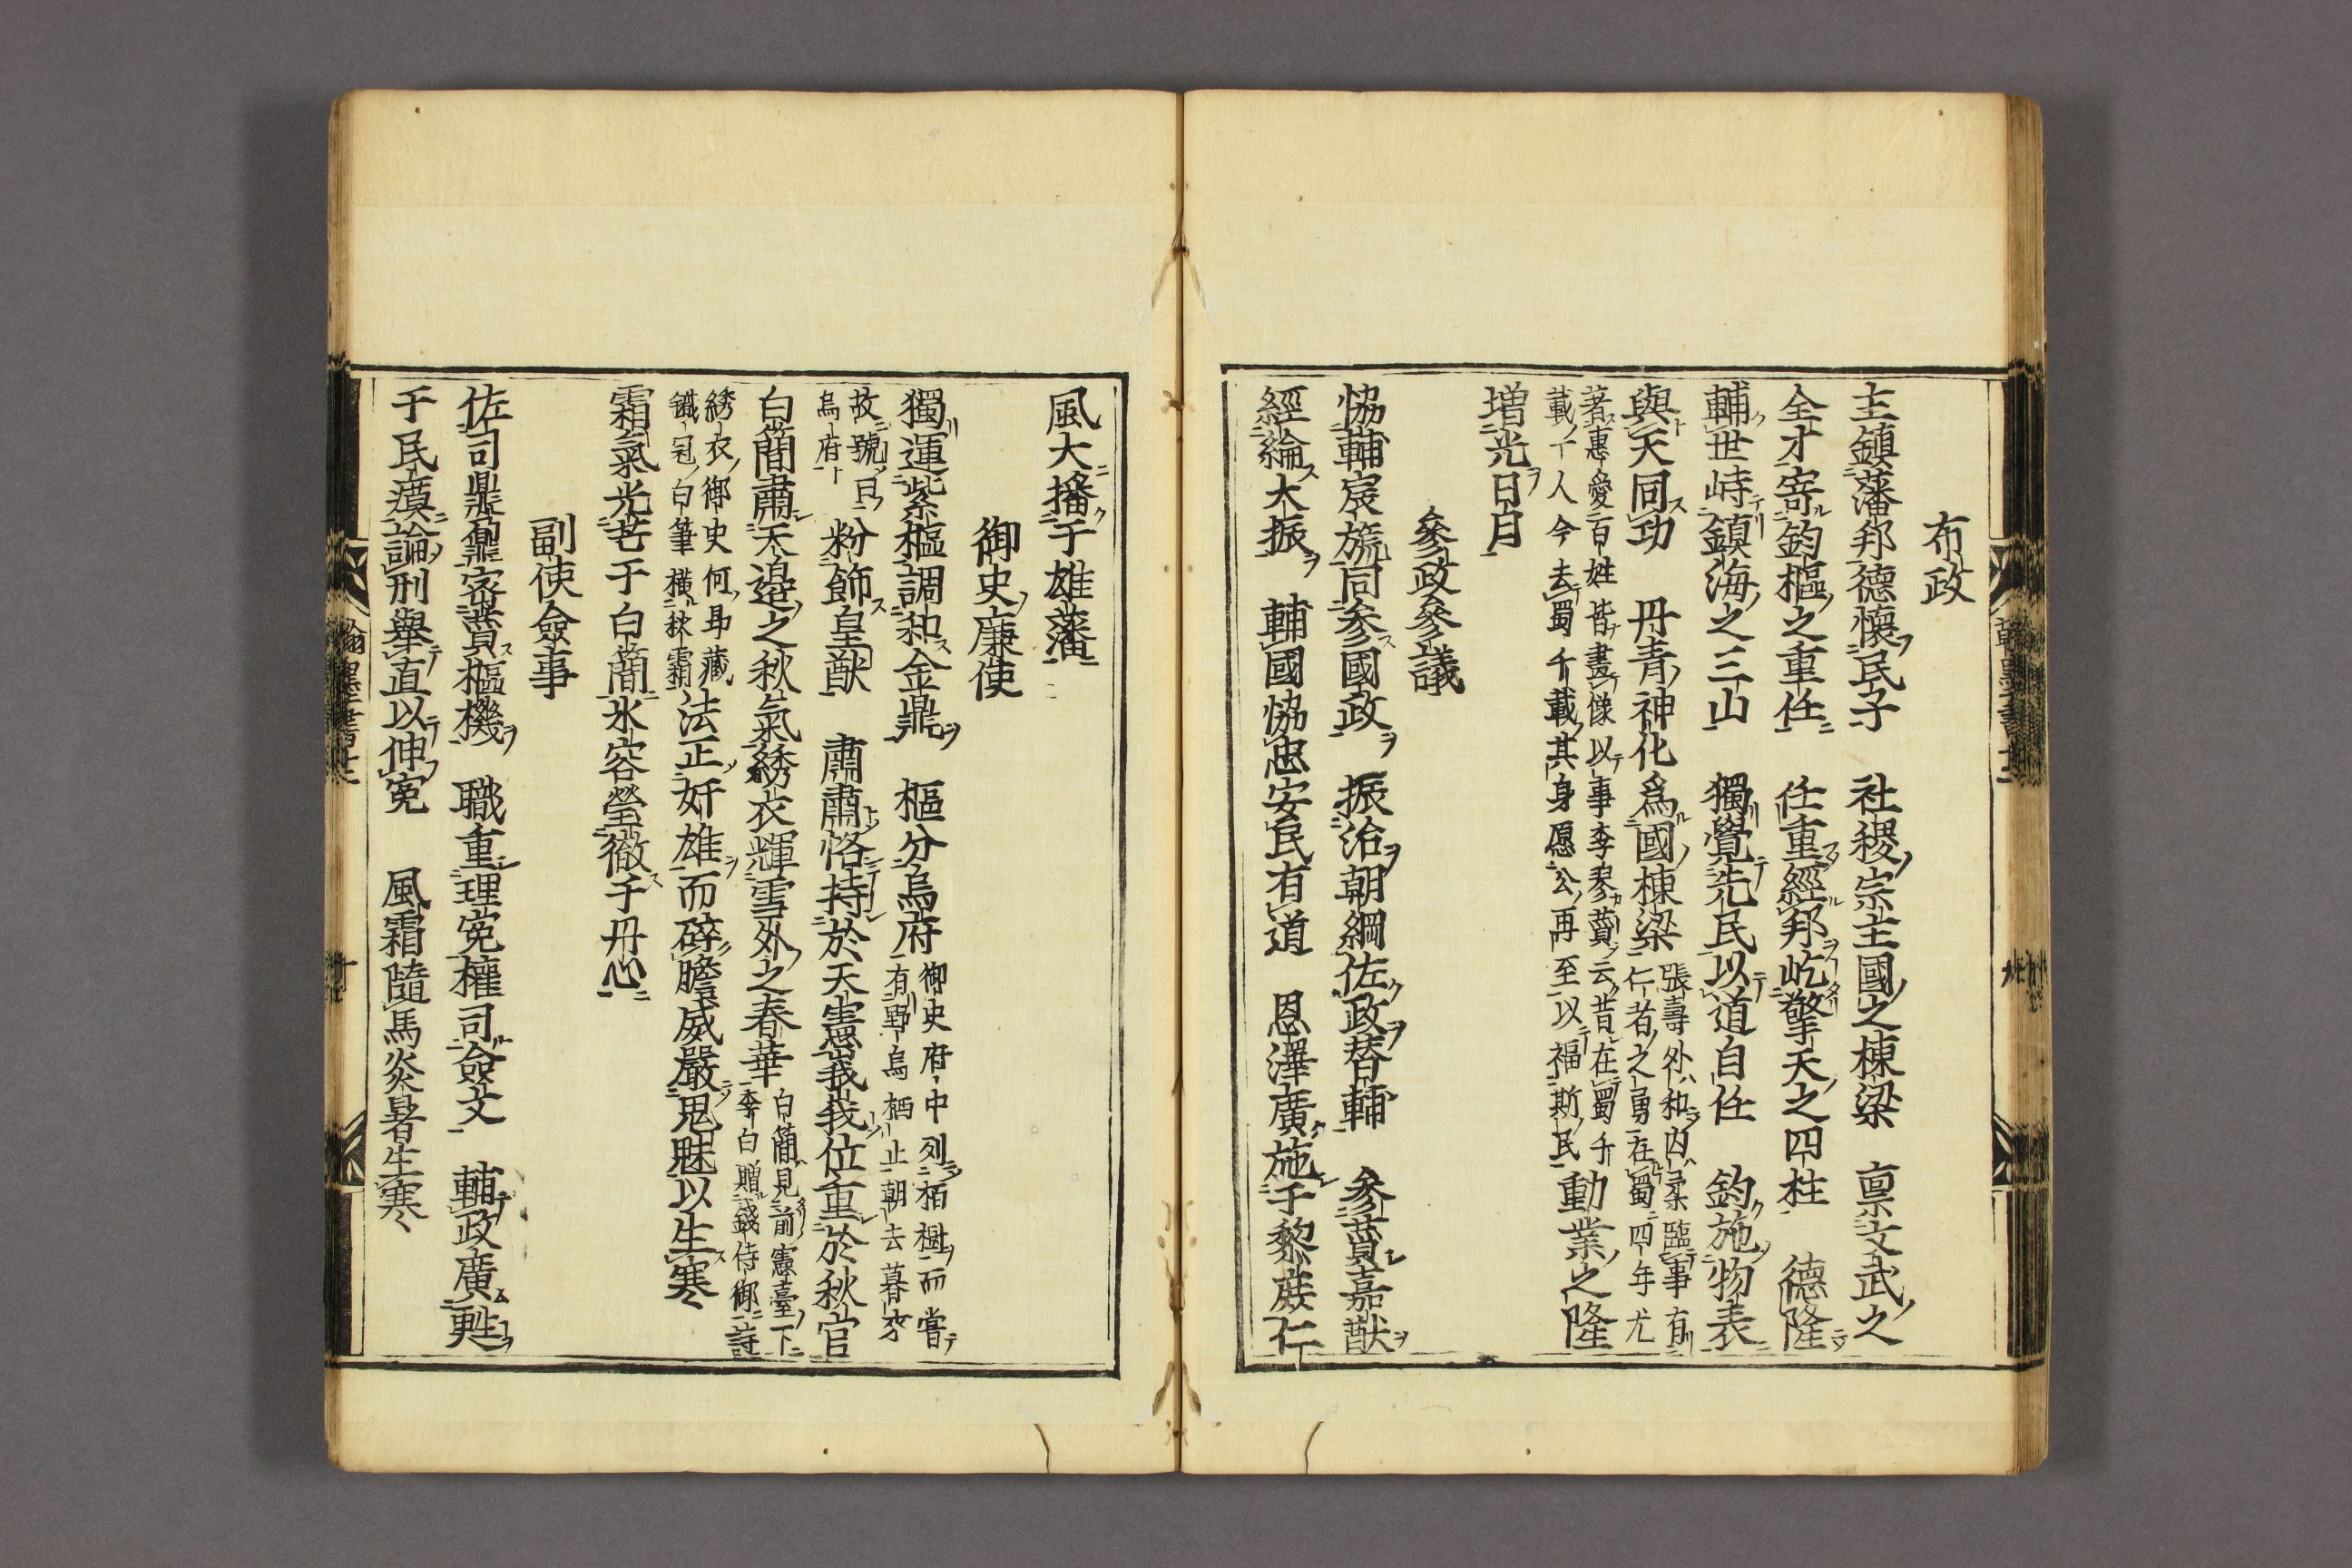 布政
主鎮藩邦德懷民子　社稷宗主國之棟梁　稟文武之
全才寄鈞樞之重任　任重經邦屹擎天之四柱　德隆
輔世峙鎮海之三山　獨覺先民以道自任　鈞施物表
與天同功　丹青神化爲國棟梁
張壽外和内柔臨事有
仁者之勇在蜀四年尤
著惠愛百姓皆畫像以事李黎蕢云昔在蜀千
載一人今去蜀千載其身愿公再至以福斯民
勳業之隆
增光日月
參政參議
協輔宸旒同參國政　振治朝綱佐政替輔　參贊嘉猷
經綸大振　輔國協忠安民有道　恩澤廣施于黎庶仁
風大播于雄藩
御史廉使
獨運紫樞調和金鼎　樞分烏府
御史府中列栢樹而嘗
有野烏栖止朝去暮來
故號曰
烏府
粉飾皇猷　肅肅恪持於天憲峩峩位重於秋官
白簡肅天邉之秋氣綉衣輝雪外之春華
白簡見前憲臺下
李白贈錢侍御詩
綉衣御史何身藏
鐵冠白筆橫秋霜
法正奸雄而碎膽威嚴鬼魅以生寒
霜氣光芒于白簡氷容瑩徹于丹心
副使僉事
佐司鼎鼐密贊樞機　職重理寃權司僉文　輔政廣甦
于民瘼論刑舉直以伸寃　風霜隨馬炎暑生寒